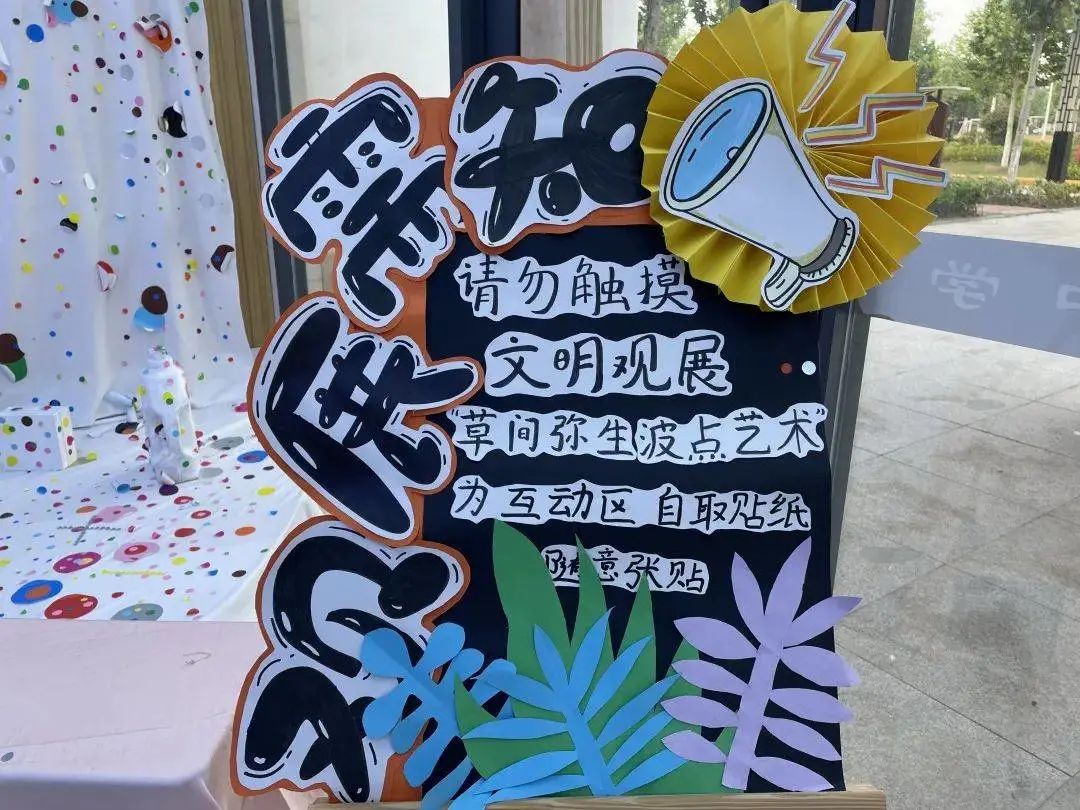 展需知
请勿触摸
文明观展
"草间弥生波点艺术"
为互动区 自取贴纸
可随意张贴